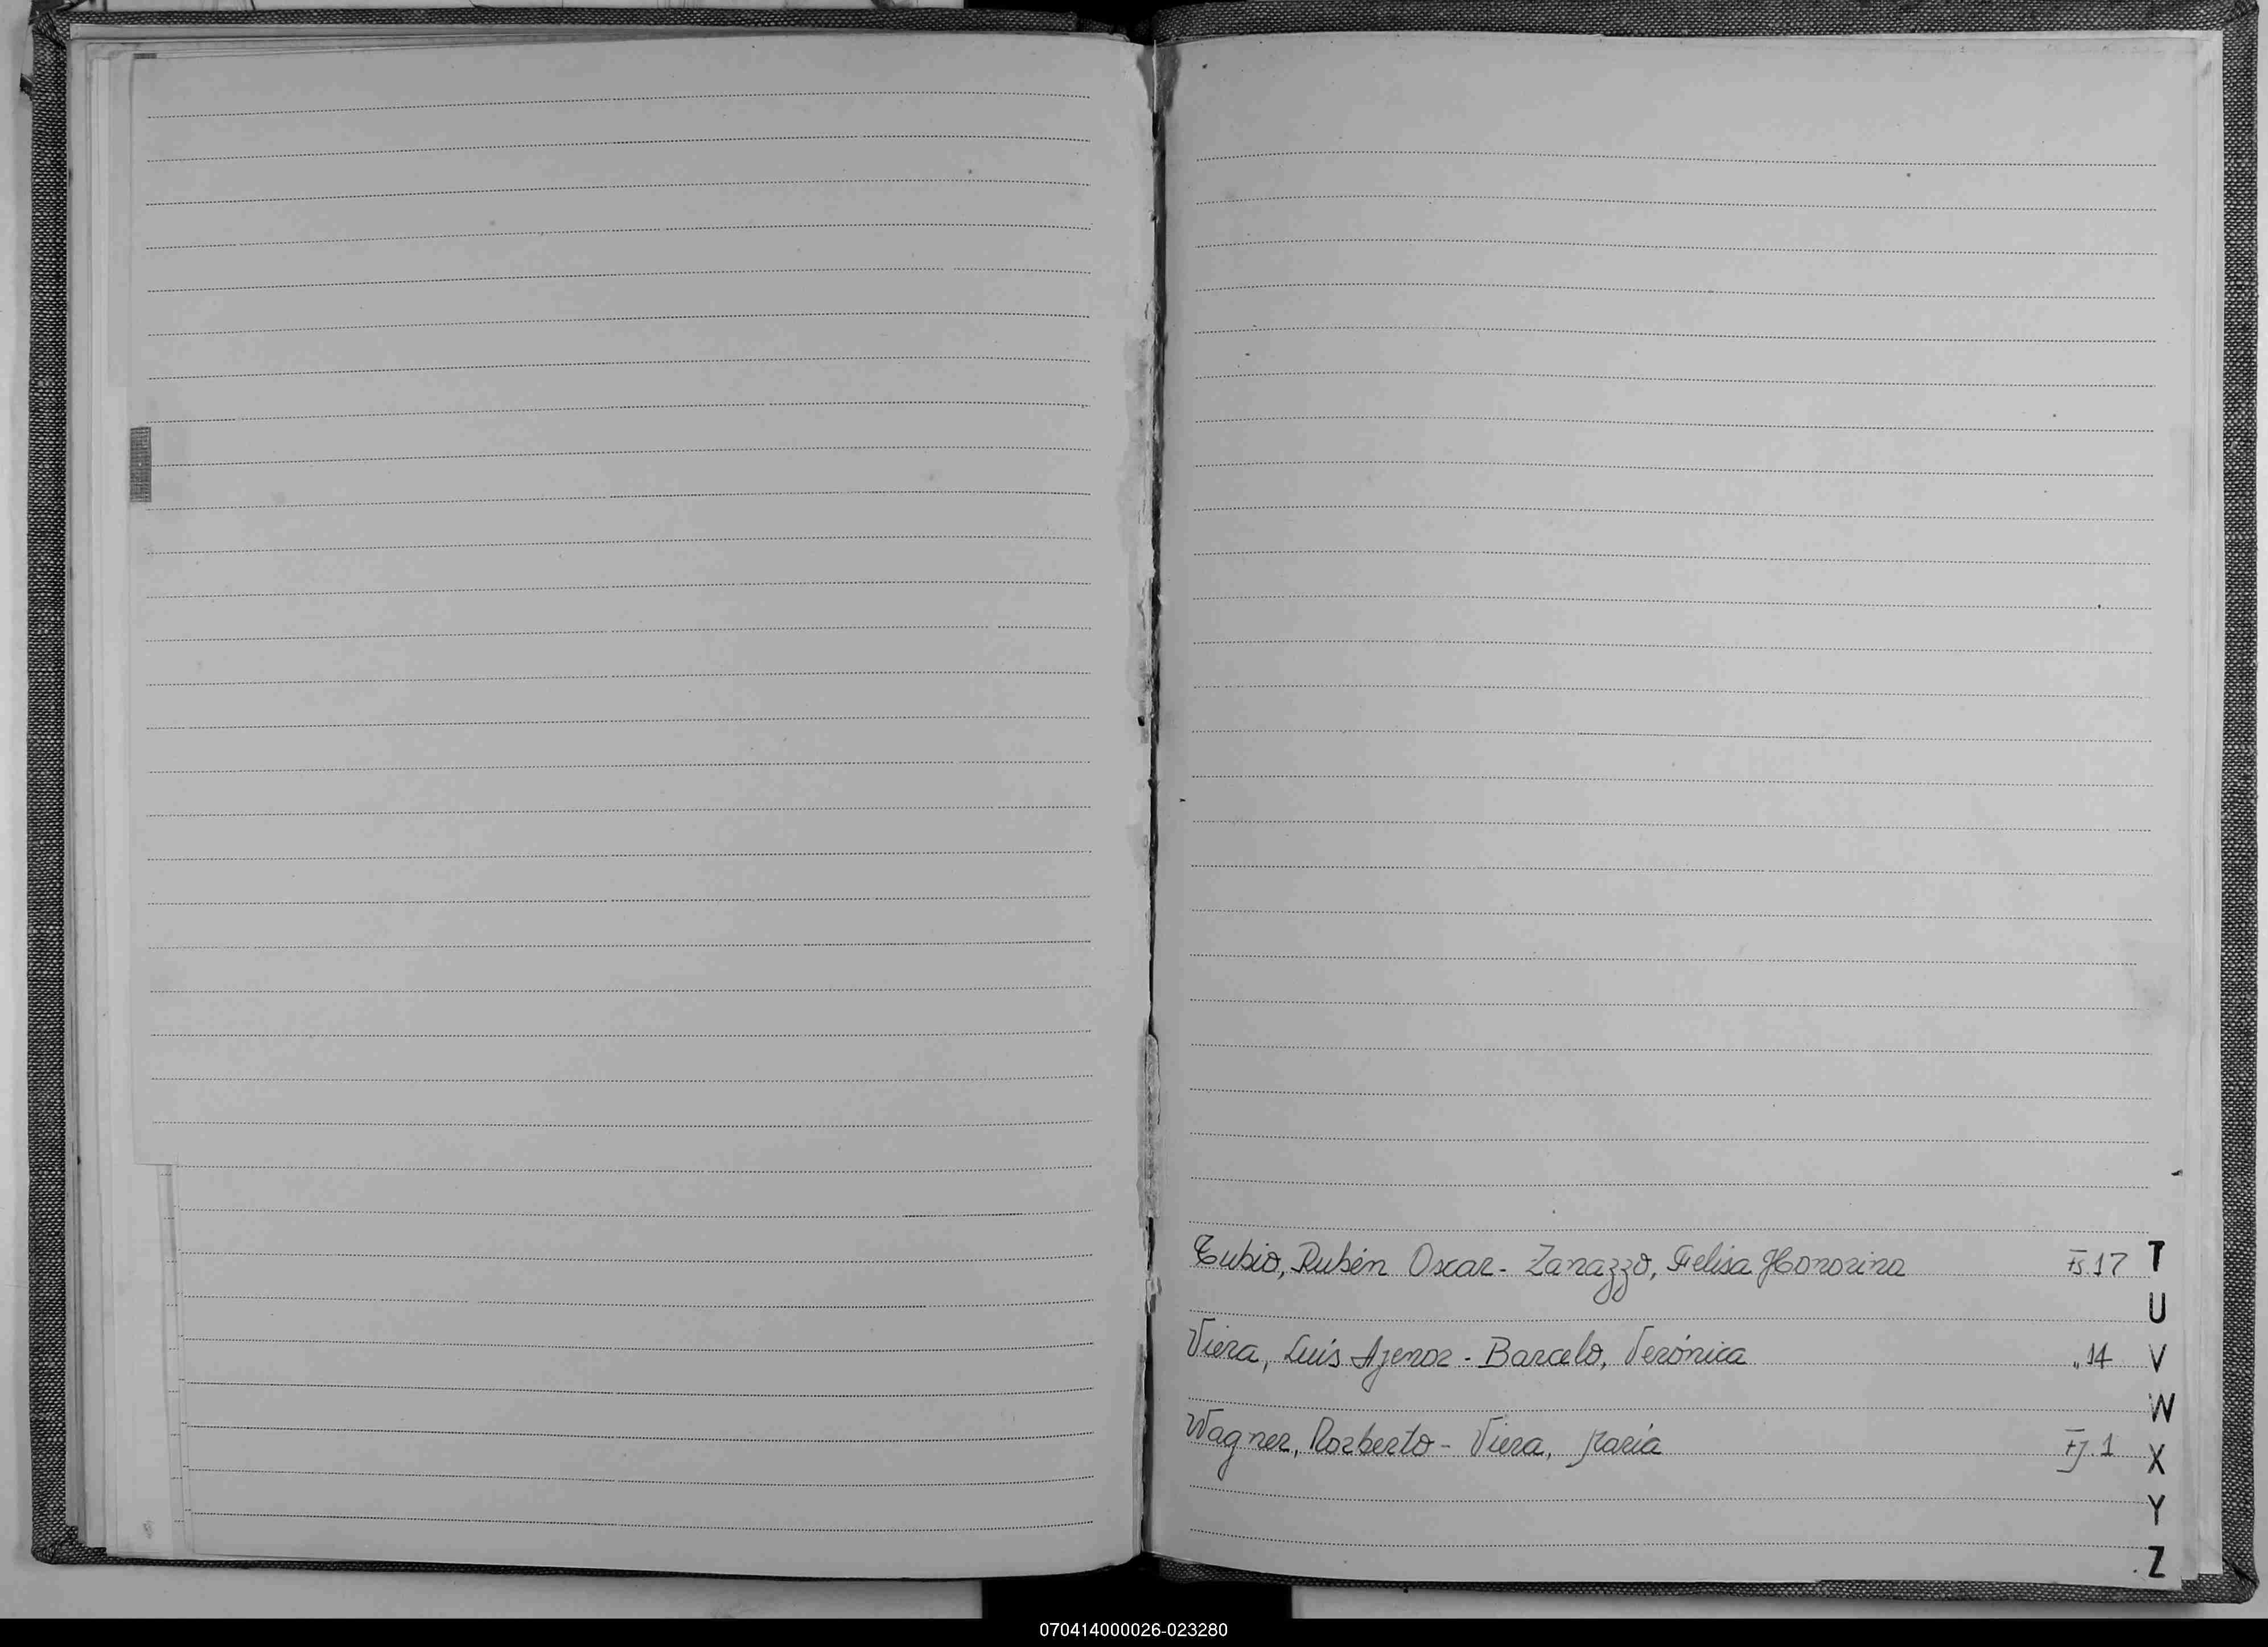 Tubio, Rubén Oscar - Zanazzo, Felisa Honorina Fs. 17 T
U
Viera, Luis Agenor - Barcelo, Verónica " 14 V
W
Wagner, Norberto - Viera, María Fj. 1 X
Y
Z
070414000026-023280